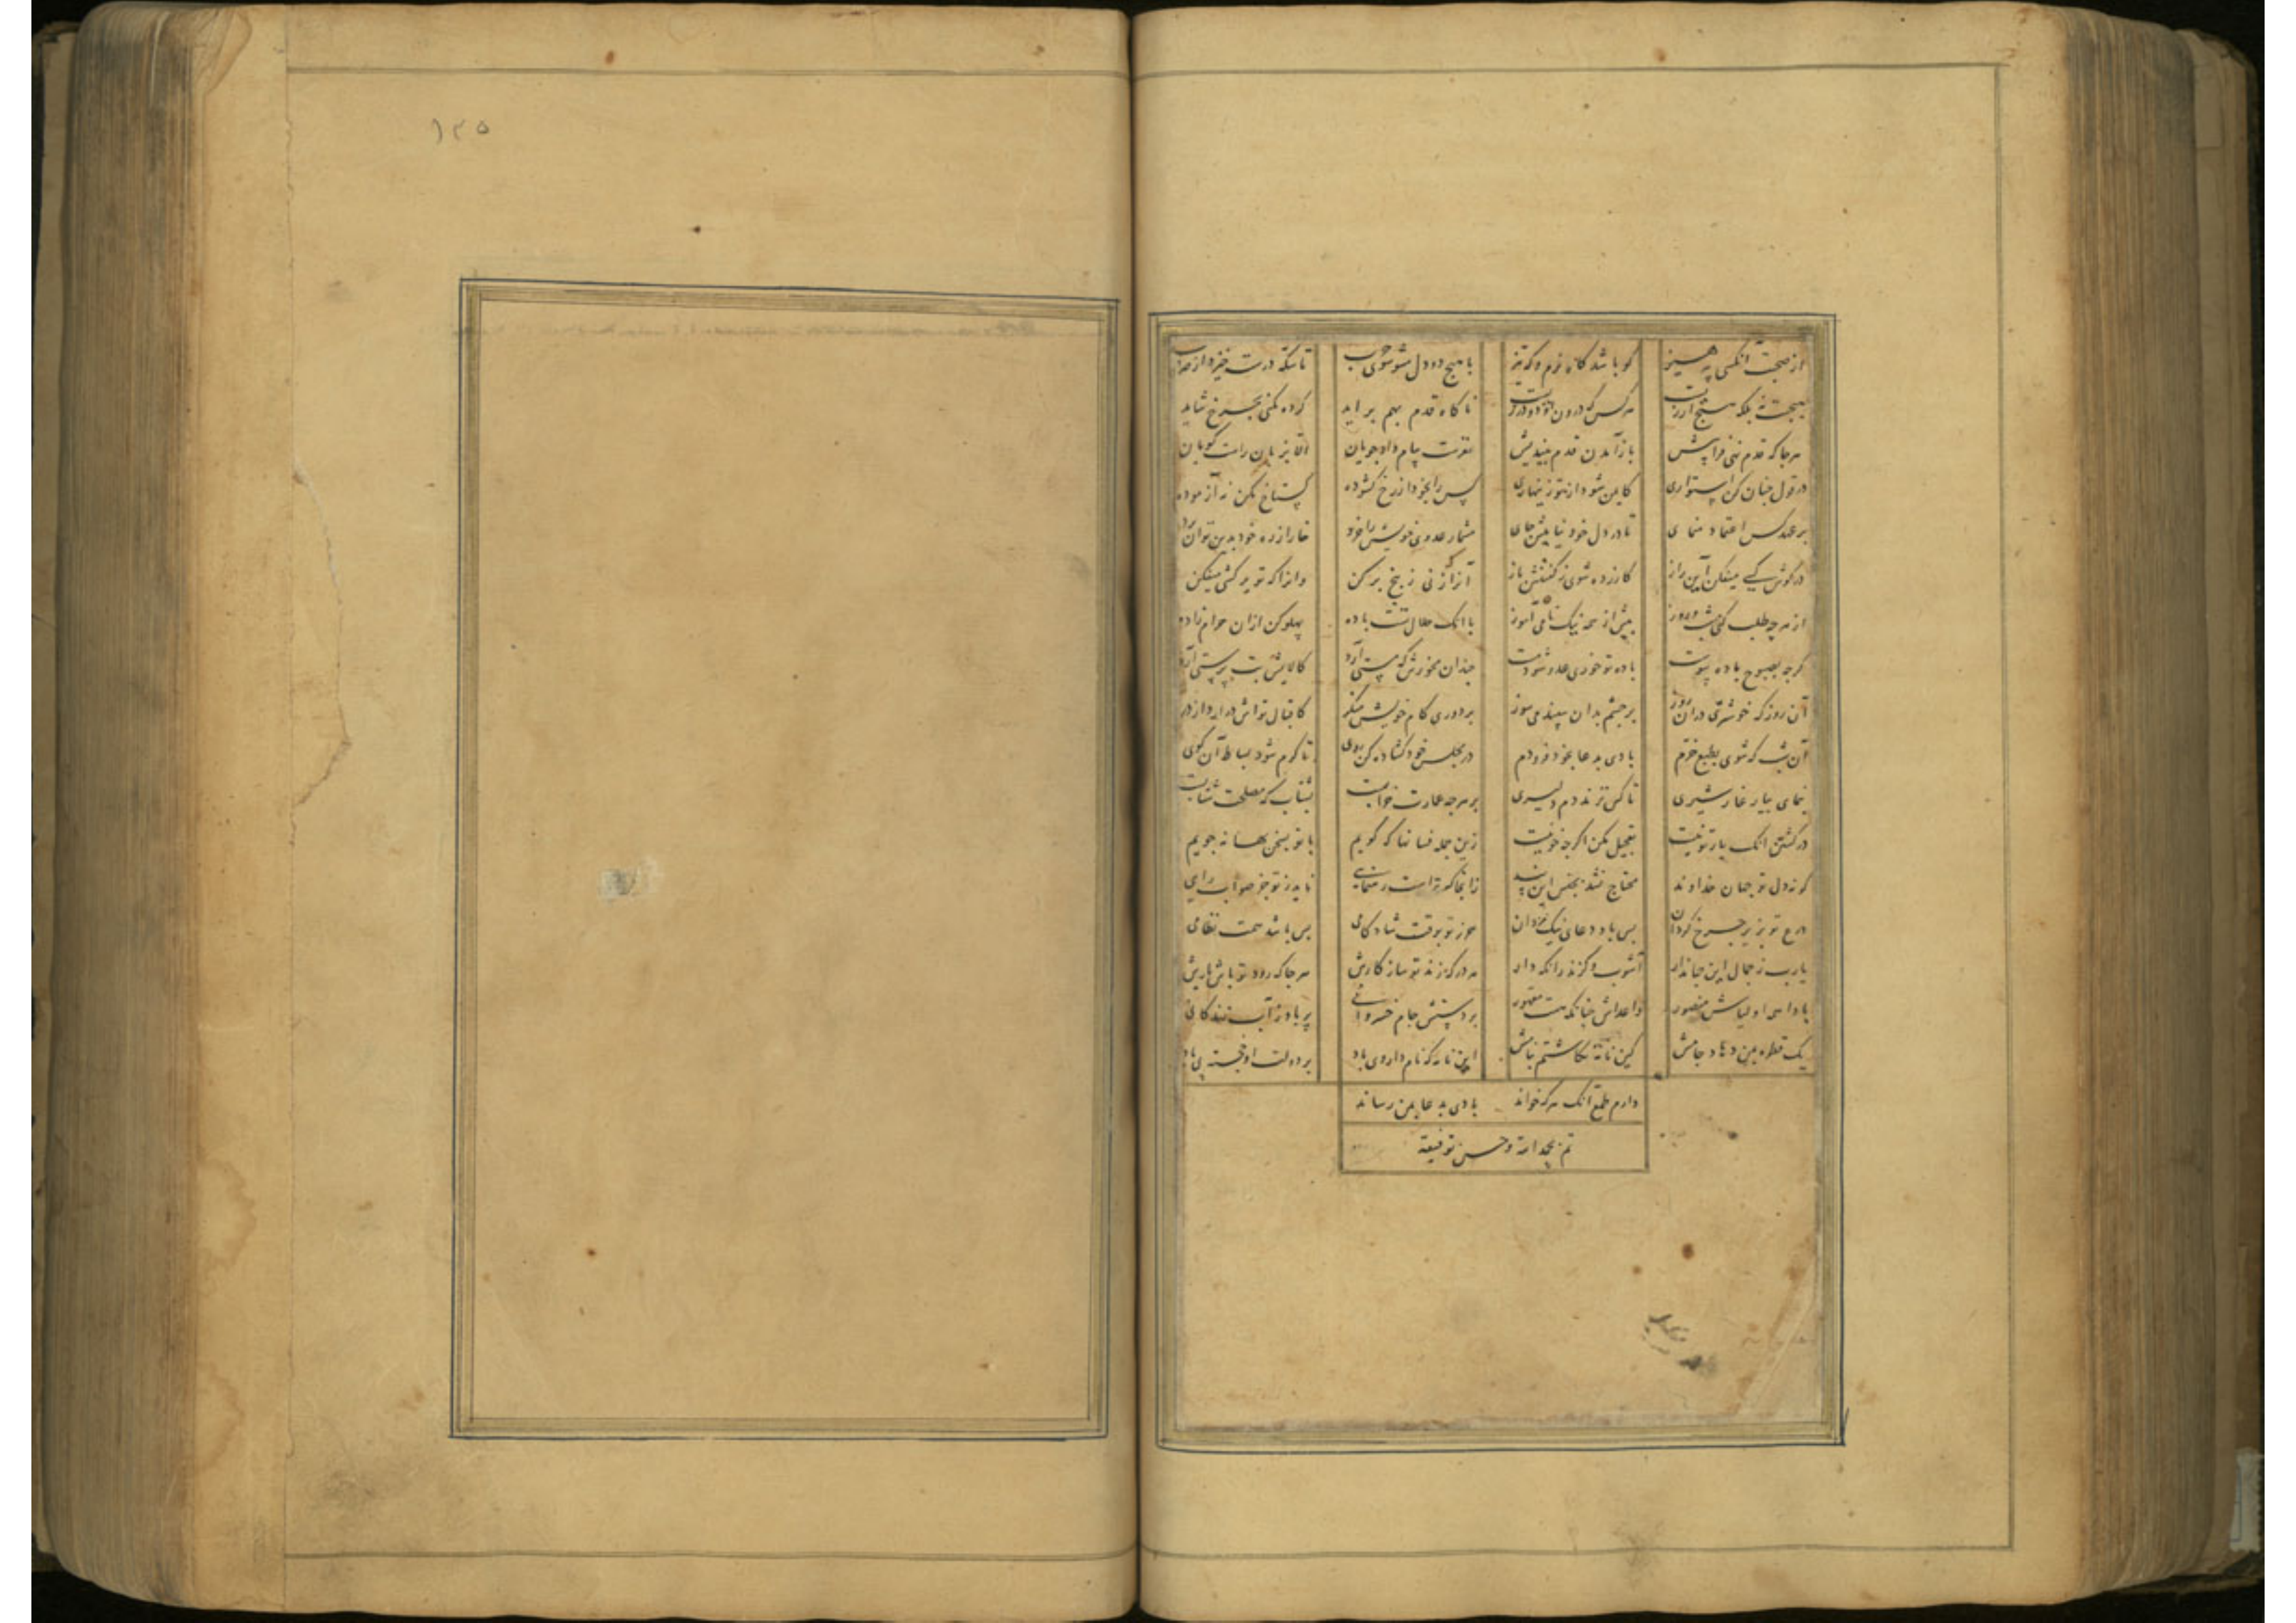 از صحبت آنکسی بپرهیز کو باشد گاه نرم و گه تیز با هیچ دو دل مشو سوی حرب تا سکه درست خیزد از ضرب
ناگاه قدم بهم برآید کرده نکنی بچرخ شاید
هر جا که قدم نهی فراپیش باز آمدن قدم بیندیش نفرست پیام داد جویان الا بزبان راست گویان
در قول چنان کن استواری کایمن شود از تو زینهاری کس را بخود از رخ گشوده گستاخ مکن نه آزموده
بر عهد کس اعتماد منمای تا در دل خود نیابیش جای مشمار عدوی خویش را خرد خار از ره خود بدین توان برد
در گوش کسی میفکن این راز کازرده شوی ز گفتنش باز آنرا که زنی ز بیخ بر کن وانرا که تو برکشی میفکن
از هر چه طلب کنی شب و روز بیش از همه نیک نامی آموز با آنک حلال تست باده پهلو کن از آن حرام زاده
گرچه بصبوح باده پیوست باده تو خوری عدو شود مست چندان مخورش که مستی آرد کالایش بت پرستی آرد
آن روز که خوشتری در آن روز بر چشم بدان سپند می سوز بر دوری کام خویش منگر کاقبال تواش درآرد از در
آن شب که شوی بطبع خرم بادی بدعا بخود فرو دم در مجلس خود گشاده کن روی تا گرم شود بساط آن کوی
تا کس نزند دم دلیری بر هرچه عمارت خرابست بشتاب که مصلحت شتابست
در کشتن آنک یار تو نیست تعجیل مکن اگرچه خونیست زین جمله فسانها که گویم با تو بسخن بهانه جویم
گر نه دل تو جهان خداوند محتاج نشد بجنس این پند زانجا که تراست رهنمایی ناید ز تو جز صواب رایی
درع تو بزیر چرخ گردان بس باد دعای نیک مردان حرز تو بوقت شادکامی بس باشد همت نظامی
یارب ز جمال این جهاندار آشوب و گزند را نگه دار هر در که زند تو ساز کارش هر جا که رود تو باش یارش
بادا همه اولیاش منصور واعداش چنانکه هست مقهور بر دستش جام خسروانی پر باد ز آب زندگانی
یک قطره بمن دهاد جامش کین نامه نگاشتم بنامش این نامه که نام دار وی باد بر دولت او خجسته پی باد
دارم طمع آنک هر که خواند بادی بدعا بمن رساند
تم بحمد الله و حسن توفیقه
۱۳۵